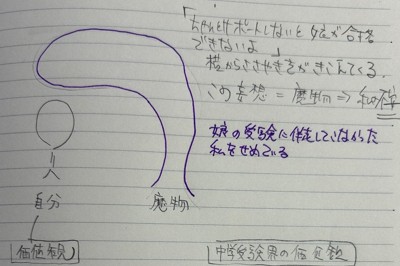 「ちゃんとサポートしないと娘が合格
できないよ」
横からささやきがきこえてくる
この妄想＝魔物⇒私の確
娘の受験に伴走していなかった
私をせめている
自分
魔物
価値観
中学受験界の価値観